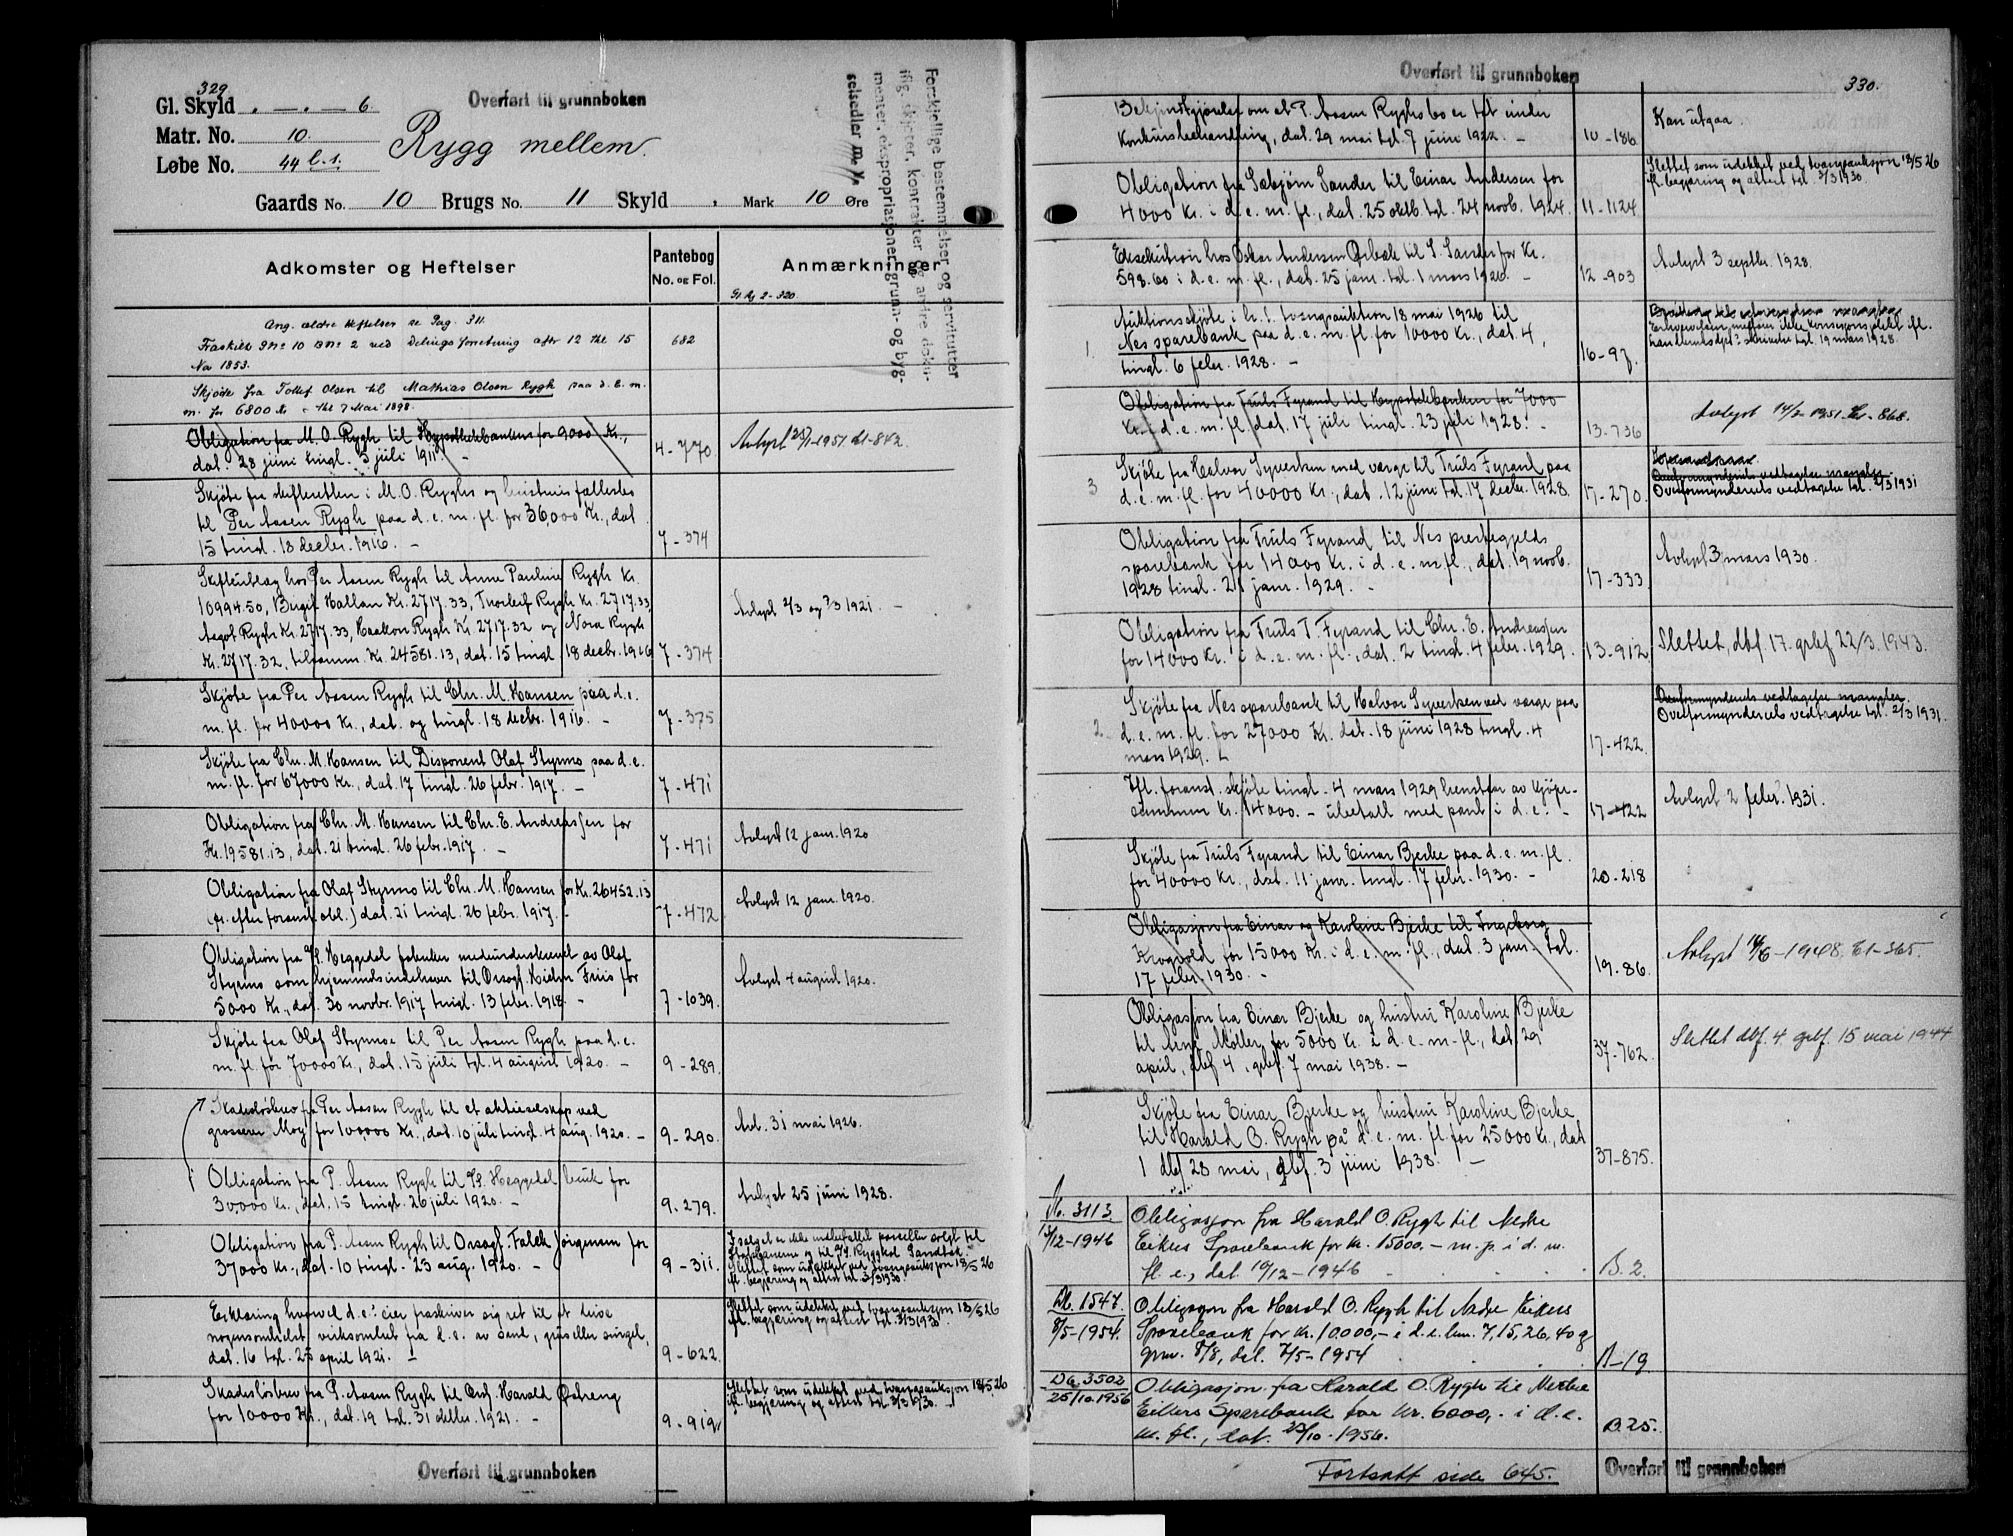 329
Gl. Skyld . — . — 6.
Matr. No. 10.
Løbe No. 44 b. 1.
Overført til grunnboken
Rygg mellem.
Gaards No. 10 Brugs No. 11 Skyld , Mark 10 Øre
Forskjellige bestemmelser og servitutter
iflg. skjøter, kontrakter og andre doku-
menter, ekspropriasjoner, grunn- og byg-
selsedler m. v.
Adkomster og Heftelser
Pantebog
No. og Fol.
Anmærkninger
Gl. Rg 2-320.
Ang. ældre Heftelser se Pag. 311.
Fraskilt GNo 10 BNo 2 ved Delings forretning afh 12 thl 15 682
Nov 1853.
Skjøde fra Tollef Olsen til Mathias Olsen Rygh paa d. e. m.
m. for 6800 Kr - thl 7 Mai 1898.
Obligation fra M. O. Rygh til Hypothekbanken for 9000 Kr.,
dat. 28 juni tingl. 3 juli 1911. - 4-770. Avlyst 23/1-1951 d1-842.
Skjøte fra skifteretten i M. O. Ryghs og hustrus fællesbo
til Per Aasen Rygh paa d. e. m. fl. for 36000 Kr., dat
15 tingl. 18 decbr. 1916. - 7-374
Skifteutlæg hos Per Aasen Rygh til Anne Pauline Rygh Kr.
10994.50, Birgit Hallan Kr. 2717.33, Thorleif Rygh Kr. 2717.33,
Aagot Rygh Kr. 2717.33, Haakon Rygh Kr. 2717.32 og Nora Rygh
Kr. 2717.32, tilsamm. Kr. 24581.13, dat. 15 tingl 18 decbr. 1916 7-374
Avlyst 2/3 og 7/3 1921. -
Skjøte fra Per Aasen Rygh til Chr. M. Hansen paa d. e.
m. fl. for 40000 Kr., dat. og tingl. 18 decbr. 1916. - 7-375
Skjøte fra Chr. M. Hansen til Disponent Olaf Styrmo paa d. e.
m. fl. for 67000 Kr., dat. 17 tingl. 26 febr. 1917. - 7-471
Obligation fra Chr. M. Hansen til Chr. E. Andreassen for
Kr. 19581.13, dat. 21 tingl. 26 febr. 1917. - 7-471 Avlyst 12 jan. 1920
Obligation fra Olaf Styrmo til Chr. M. Hansen for Kr. 26452.13
(pr. efter foranst. obl.) dat. 21 tingl. 26 febr. 1917. - 7-472 Avlyst 12 jan. 1920.
Obligation fra A/S. Heggedal fabriker medunderskrevet av Olaf
Styrmo som hjemmelsindehaver til Orsagf. Kielen Friis for
5000 Kr., dat. 30 novbr. 1917 tingl. 13 febr. 1918. - 7-1039. Avlyst 4 august 1920.
Skjøte fra Olaf Styrmoe til Per Aasen Rygh paa d. e.
m. fl. for 70000 Kr., dat. 15 juli tgl. 4 august 1920. - 9-289.
Skadesløsbrev fra Per Aasen Rygh til et aktieselskap ved
grosserer Moy for 100,000 Kr., dat. 10 juli tingl. 4 aug. 1920. - 9-290. Avl. 31 mai 1926.
Obligation fra P. Aasen Rygh til A/S. Heggedal bruk for
30,000 Kr., dat. 15 tingl. 26 juli 1920. - 9-279. Avlyst 25 juni 1928.
Obligation fra P. Aasen Rygh til Orsagf. Falck Jørgensen for
37000 Kr., dat. 10 tingl. 23 aug. 1920. - 9-311.
I salget er ikke indbefattet parseller solgt til
Statsbanerne og til A/S. Ryggkol Sandtak.
Slettet som udekket ved tvangsauksjon 18/5 26
fl. begjæring og attest tgl. 3/3 1930.
Erklæring hvorved d. e.s eier fraskriver sig ret til at drive
nogensomhelst virksomhet fra d. e. av sand, grus eller singel,
dat. 16 tgl. 25 april 1921. - 9-622.
Slettet som udekket ved tvangsauksjon 18/5 26
fl. begjæring og attest tgl. 3/3 1930.
Skadesløsbrev fra P. Aasen Rygh til Orsf. Harald Østreng
for 10000 Kr., dat. 19 tgl. 31 decbr. 1921. - 9-919.
Slettet som udekket ved tvangsauksjon 18/5 26
fl. begjæring og attest tgl. 3/3 1930. -
Overført til grunnboken
Overført til grunnboken
330.
Bekjendtgjørelse om at P. Aasen Ryghs bo er tat under
konkursbehandling, dat. 29 mai tgl. 7 juni 1922. - 10-186. Kan utgaa
Obligation fra Sæbjørn Sander til Einar Andersen for
4000 Kr. i d. e. m. fl., dat. 25 oktb. tgl. 24 novb. 1924. 11-1124
Slettet som udekket ved tvangsauksjon 18/5 26
fl. begjæring og attest tgl. 3/3 1930.
Eksekution hos Oskar Andersen Ørbæk til S. Sander for Kr.
598.60 i d. e. m. fl., dat. 25 jan. tgl. 1 mars 1926. - 12-903 Avlyst 3 septbr. 1928.
1. Auktionsskjøte i h. t. tvangsauktion 18 mai 1926 til
Nes sparebank paa d. e. m. fl. for 10000 Kr., dat. 4,
tingl. 6 febr. 1928. - 16-97.
Erhververen mener ikke konsesjonsplikt ifl.
Landbruksdept.s skrivelse tgl. 19 mars 1928.
Obligation fra Truls Fyrand til Hypotekbanken for 7000
Kr. i d. e. m. fl., dat. 17 juli tingl. 23 juli 1928. - 13-736 Avlyst 14/2-1951. d1-868.
3 Skjøte fra Halvor Syversen med værge til Truls Fyrand paa
d. e. m. fl. for 40000 Kr., dat. 12 juni tgl. 17 decbr. 1928. 17-270.
Overformynderiets vedtagelse mangler.
Overformynderiets vedtagelse tgl. 2/3 1931
Obligation fra Truls Fyrand til Nes prestegjelds
sparebank for 14000 Kr. i d. e. m. fl., dat. 19 novb.
1928 tingl. 21 janr. 1929. - 17-333 Avlyst 3 mars 1930.
Obligation fra Truls T. Fyrand til Chr. E. Andreassen
for 14000 Kr. i d. e. m. fl., dat. 2 tingl. 4 febr. 1929. 13-912 Slettet, dbf. 17. grbf 22/3. 1943.
2. Skjøte fra Nes sparebank til Halvor Syversen ved værge paa
d. e. m. fl. for 27000 Kr. dat. 18 juni 1928 tingl. 4
mars 1929. 17-422.
Overformynderiets vedtagelse mangler.
Overformynderiets vedtagelse tgl. 2/3 1931.
Ifl. foranst. skjøte tingl. 4 mars 1929 henstaar av kjøpe-
summen Kr. 14000. - ubetalt med pant i d. e. - 17-422 Avlyst 2 febr. 1931.
Skjøte fra Truls Fyrand til Einar Bjerke paa d. e. m. fl.
for 40000 Kr., dat. 11 janr. tingl. 17 febr. 1930. - 20-218
Obligasjon fra Einar og Karoline Bjerke til Ingeborg
Krogvold for 15000 Kr. i d. e. m. fl., dat. 3 jan. tgl.
17 febr. 1930. - 19-86. Avlyst 14/6-1948. E1-365.
Obligasjon fra Einar Bjerke og hustru Karoline Bjerke
til Arne Møller for 5000 Kr. i d. e. m. fl., dat 29
april, dbf 4, grbf. 7 mai 1938. - 37-762. Slettet dbf. 4. grbf. 15 mai 1944
Skjøte fra Einar Bjerke og hustru Karoline Bjerke
til Harald O. Rygh på d. e. m. fl for 25000 Kr., dat
1 dbf 28 mai, gbf. 3 juni 1938. - 37-875.
No. 3113
13/12-1946
Obligasjon fra Harald O. Rygh til Nedre
Eikers Sparebank for kr. 15000.- m. p. i d. m.
fl. e., dat 10/12-1946 B. 2.
Db. 1547.
8/5-1954.
Obligasjon fra Harald O. Rygh til Nedre Eikers
Sparebank for kr. 10.000,- i d. e. bnr. 7, 15, 26, 40 g
gnr. 8/8, dat. 7/5-1954 B-19
Db. 3502
25/10.1956
Obligasjon fra Harald O. Rygh til Nedre
Eikers Sparebank for kr. 6000,- i d. e.
m. fl., dat. 23/10-1956. B. 25.
Fortsatt side 645.
Overført til grunnboken